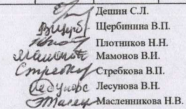 Дешин С.Л.
Щербинина В.П.
Плотников Н.Н.
Мамонов В.Н.
Стребкова В.П.
Лесунова В.Н.
Масленникова Н.В.